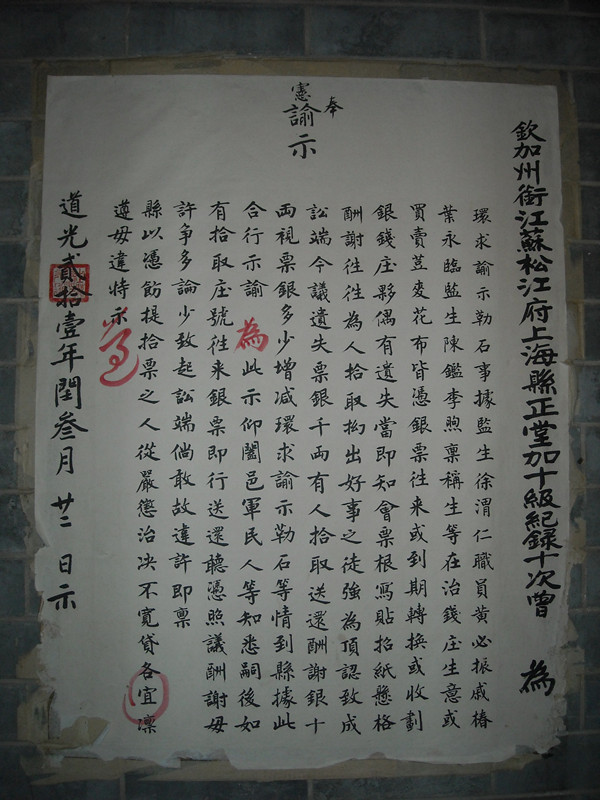 欽加州銜江蘇松江府上海縣正堂加十級紀錄十次曾 為
環求諭示勒石事據監生徐渭仁職員黃必振戚椿
葉永臨監生陳鑑李煦稟稱生等在治錢庄生意或
買賣荳麦花布皆憑銀票往來或到期轉換或收劃
銀錢庄夥偶有遺失當即知會票根寫貼招紙懸格
酬謝往往為人拾取拗出好事之徒強為頂認致成
訟端今議遺失票銀千両有人拾取送還酬謝銀十
両視票銀多少增减環求諭示勒石等情到縣據此
合行示諭為此示仰闔邑軍民人等知悉嗣後如
有拾取庄號往来銀票即行送還聽憑照議酬謝毋
許争多論少致起訟端倘敢故違許即稟
縣以憑飭提拾票之人從嚴懲治决不寬貸各宜凛
遵毋違特示
道光貳拾壹年閏叁月廿二日示
奉
憲諭示